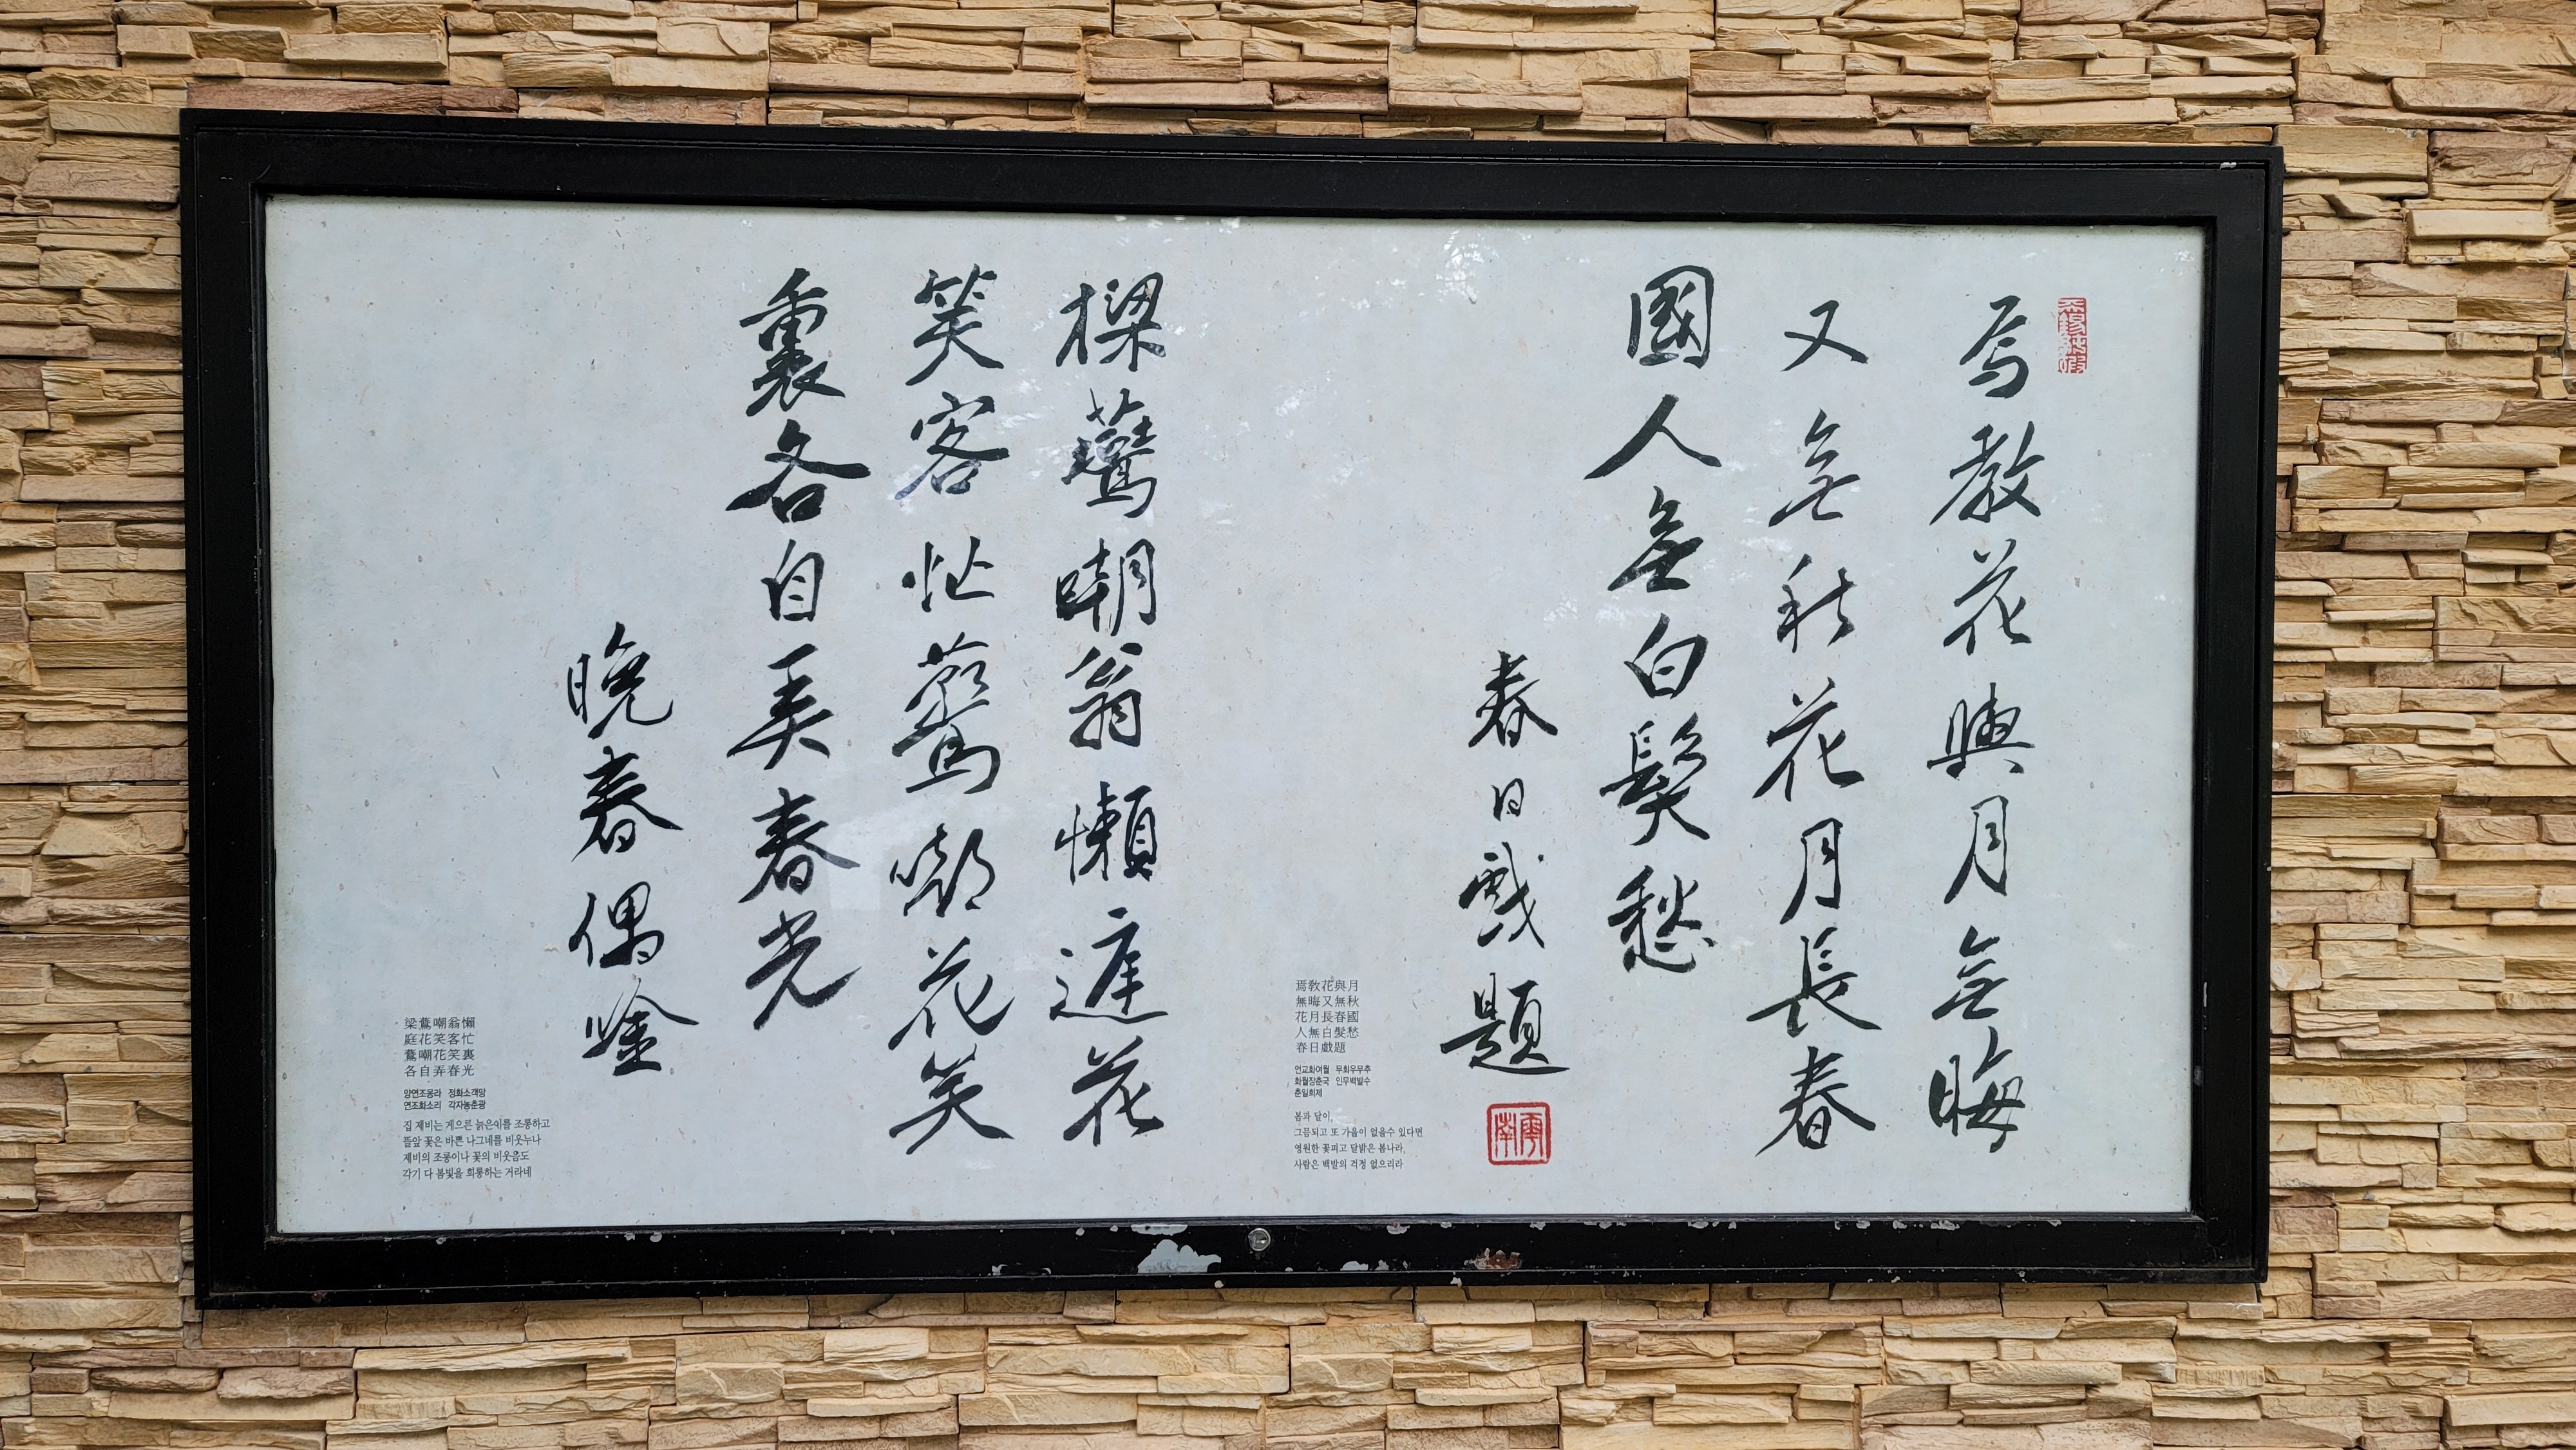 焉教花與月無晦
又無秋花月長春
國人無白髮愁
春日戲題
焉敎花與月
無晦又無秋
花月長春國
人無白髮愁
春日戱題
언교화여월 무회우무추
화월장춘국 인무백발수
춘일희제
봄과 달이,
그믐되고 또 가을이 없을수 있다면
영원한 꽃피고 달밝은 봄나라,
사람은 백발의 걱정 없으리라
樑鷰嘲翁懶庭花
笑客忙鷰嘲花笑
裏各自弄春光
晩春偶唫
梁鷰嘲翁懶
庭花笑客忙
鷰嘲花笑裏
各自弄春光
양연조옹라 정화소객망
연조화소리 각자농춘광
집 제비는 게으른 늙은이를 조롱하고
뜰앞 꽃은 바쁜 나그네를 비웃누나
제비의 조롱이나 꽃의 비웃음도
각기 다 봄빛을 희롱하는 거라네